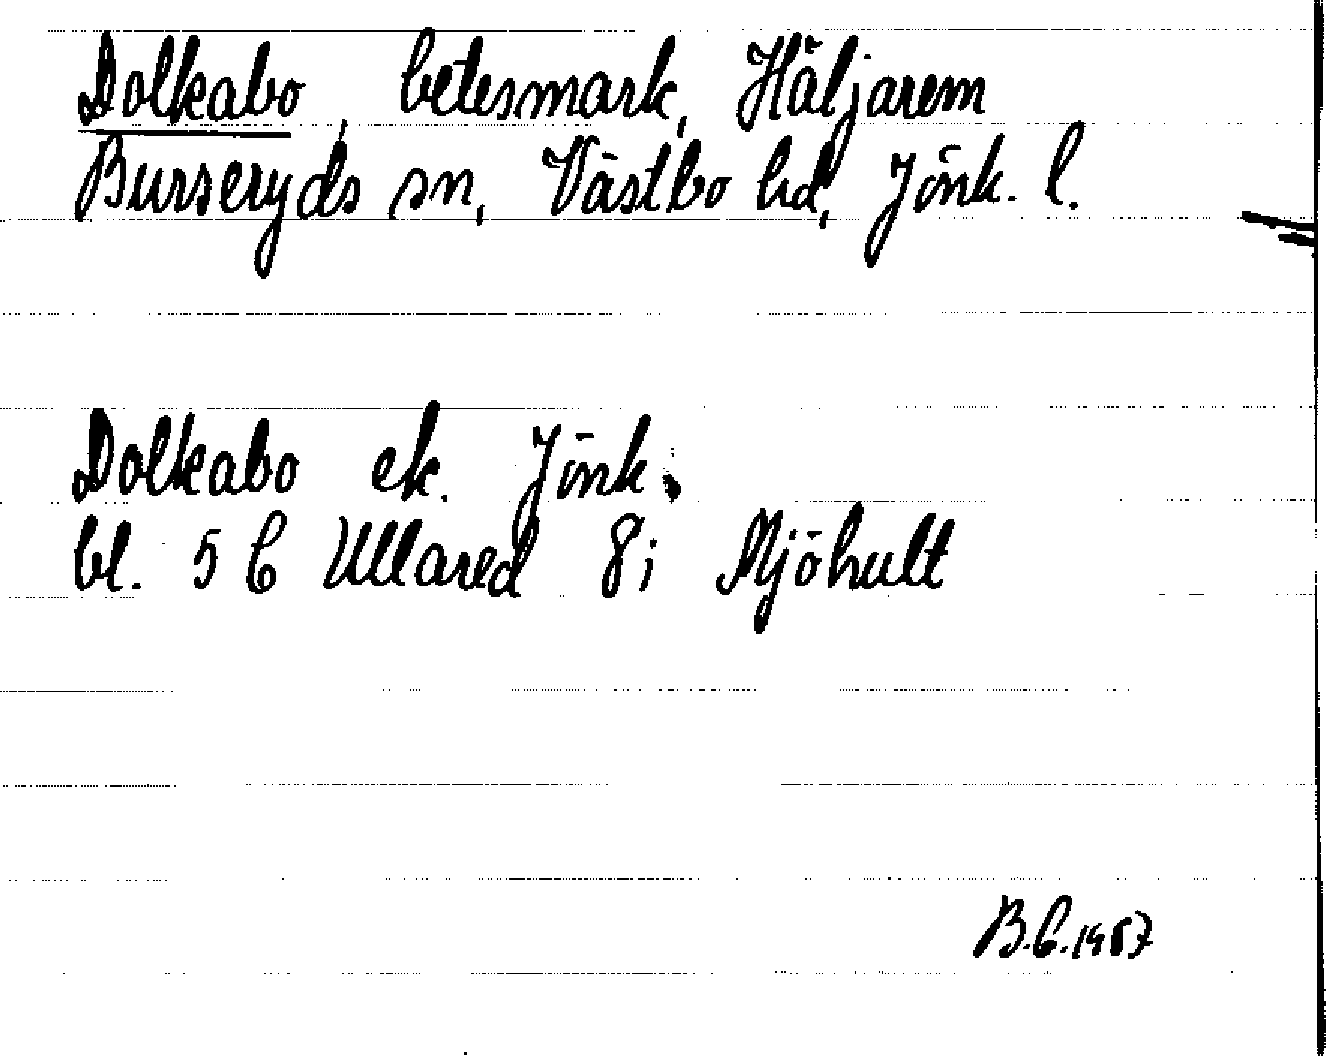 Dolkabo, betesmark, Häljarem
Burseryds sn, Västbo hd, Jönk. l.
Dolkabo ek. Jönk.
bl. 5 C Ullared 8i Mjöhult
B.C. 1957